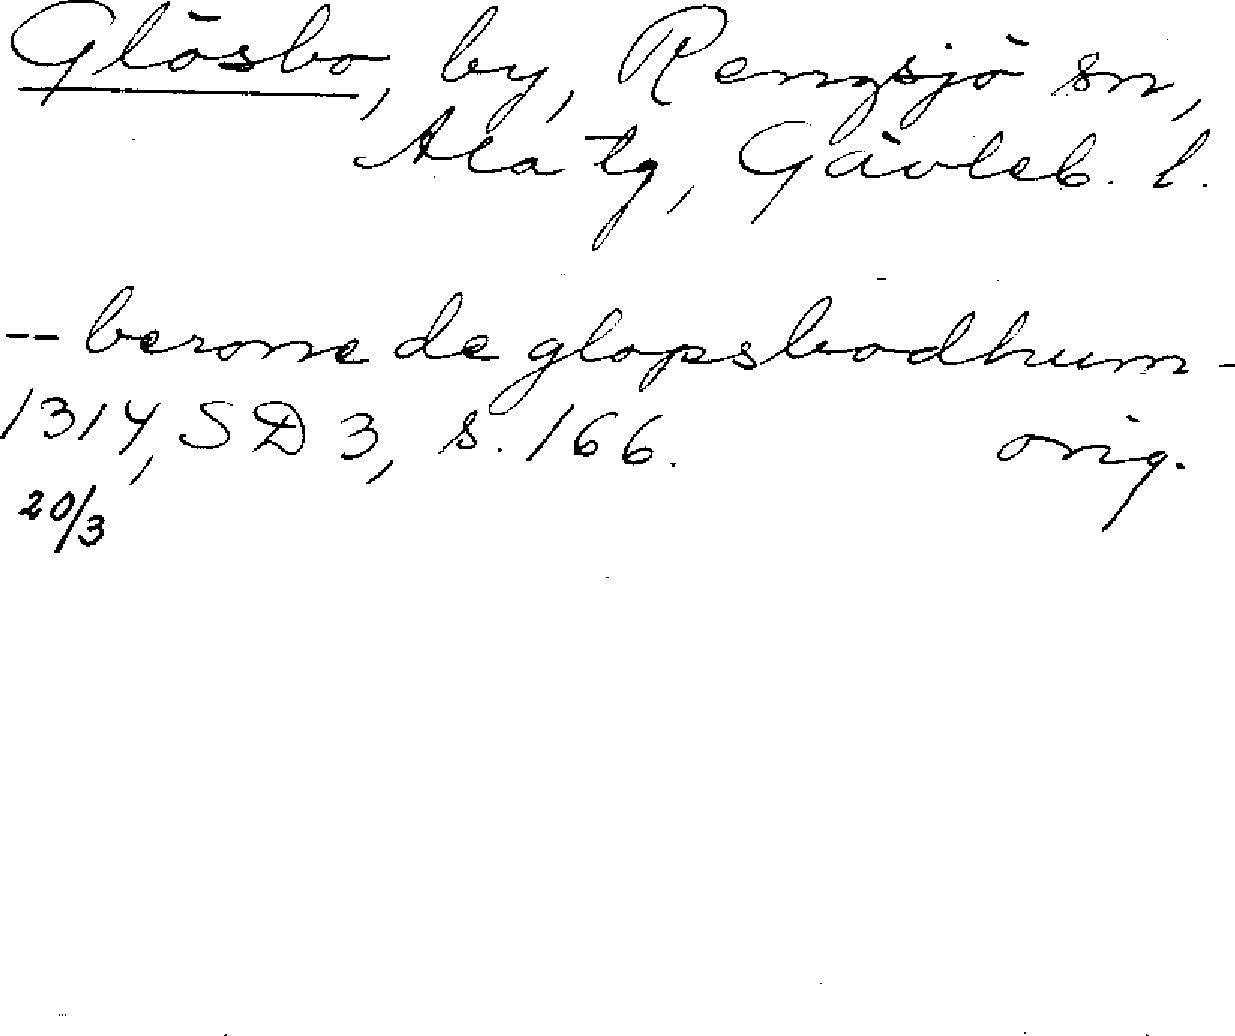 Glösbo, by, Rengsjö sn,
Ala tg, Gävleb. l.
-- berone de glopsbodhum -
1314, SD 3, s. 166. orig.
20/3